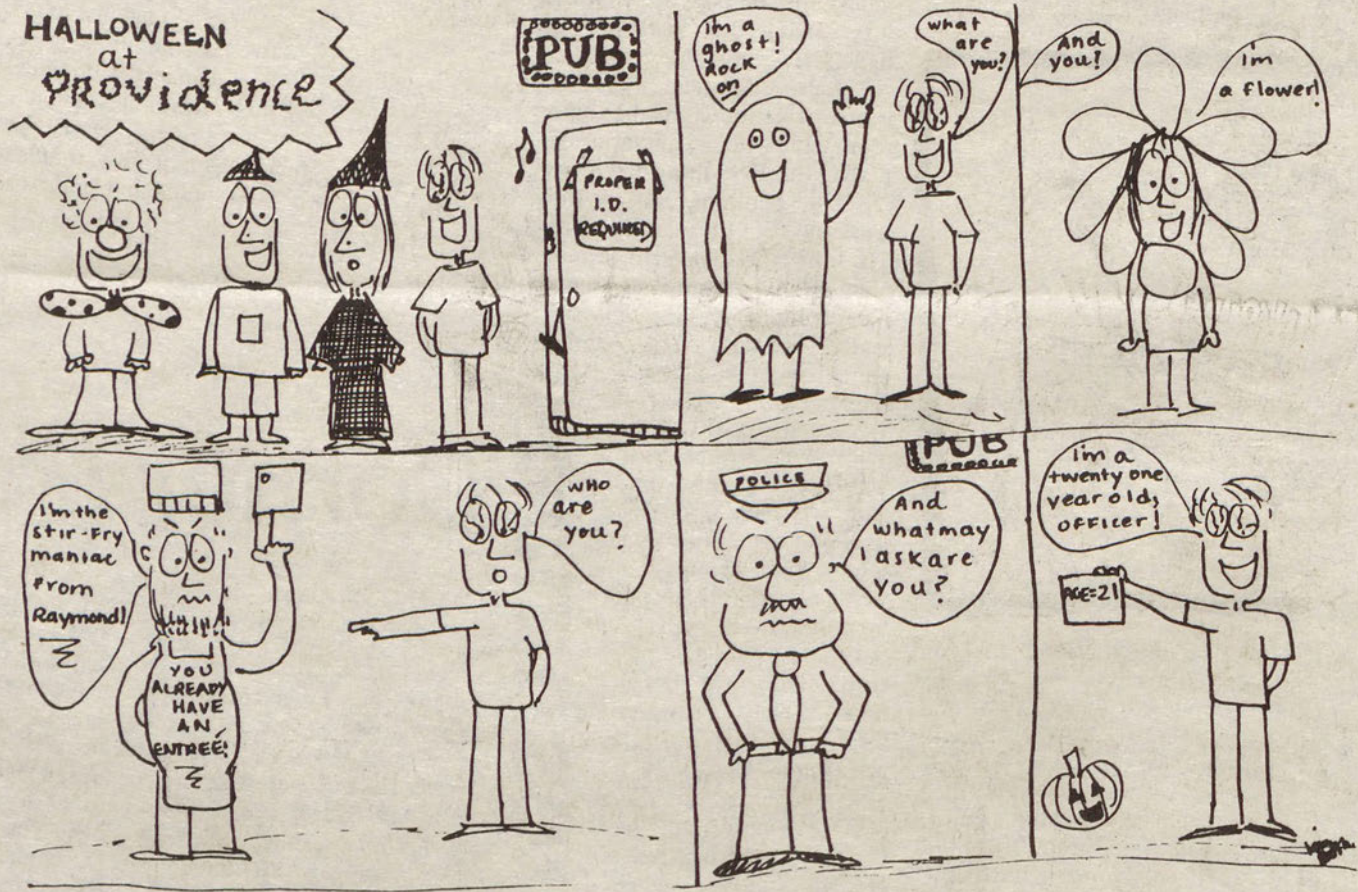 HALLOWEEN
at
PROVidence
PUB
PROPER
I.D.
REQUIRED
im a
ghost!
ROCK
on
what
are
you?
And
you?
im
a flower!
I'm the
stir-Fry
maniac
From
Raymond!
YOU
ALREADY
HAVE
AN
ENTREÉ!
WHO
are
you?
POLICE
PUB
And
what may
I ask are
you?
im a
twenty one
year old,
OFFICER!
AGE=21